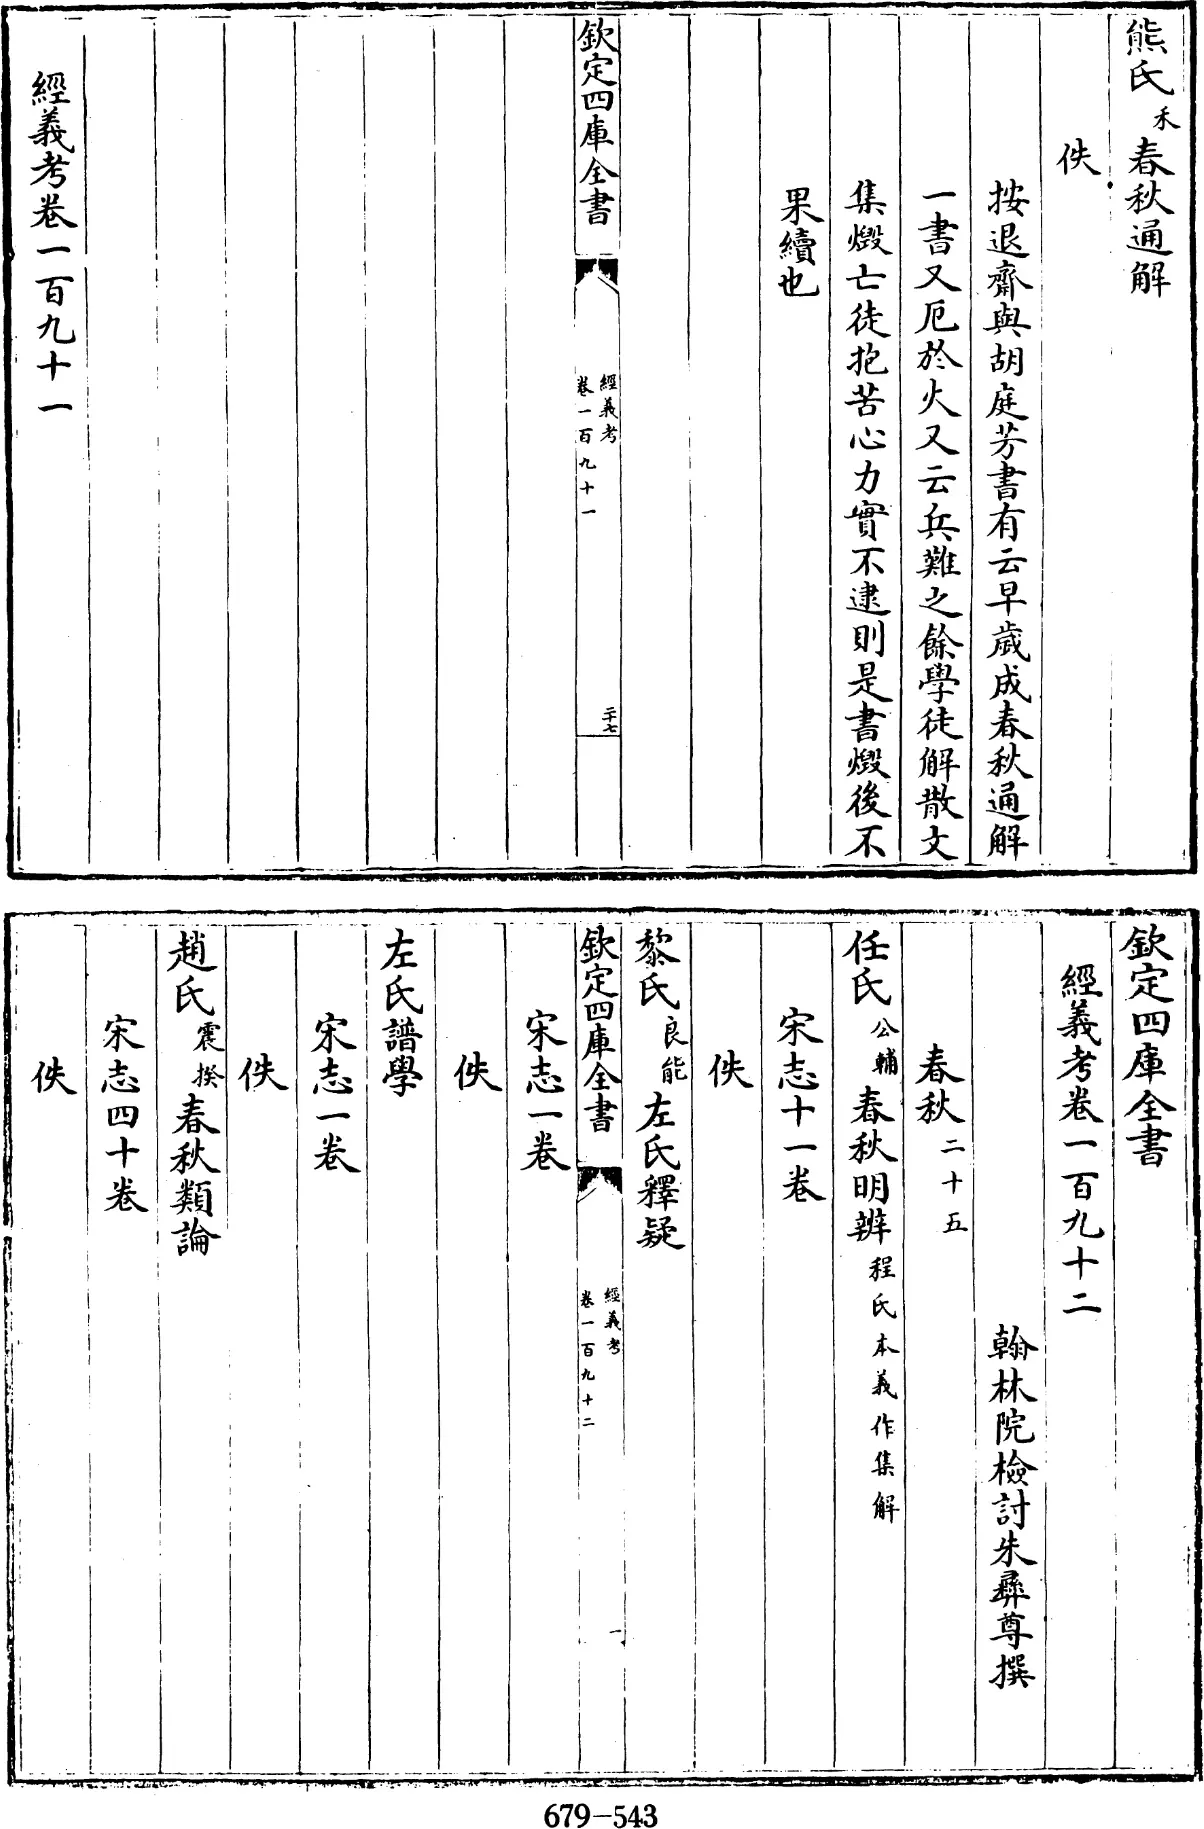 熊氏禾春秋通解
佚
按退齋與胡庭芳書有云早歲成春秋通解
一書又厄於火又云兵難之餘學徒解散文
集燬亡徒抱苦心力實不逮則是書燬後不
果續也
欽定四庫全書
經義考
卷一百九十一
二十七
經義考卷一百九十一
欽定四庫全書
經義考卷一百九十二
翰林院檢討朱彝尊撰
春秋二十五
任氏公輔春秋明辨程氏本義作集解
宋志十一卷
佚
黎氏良能左氏釋疑
欽定四庫全書
經義考
卷一百九十二
一
宋志一卷
佚
左氏譜學
宋志一卷
佚
趙氏震揆春秋類論
宋志四十卷
佚
679-543